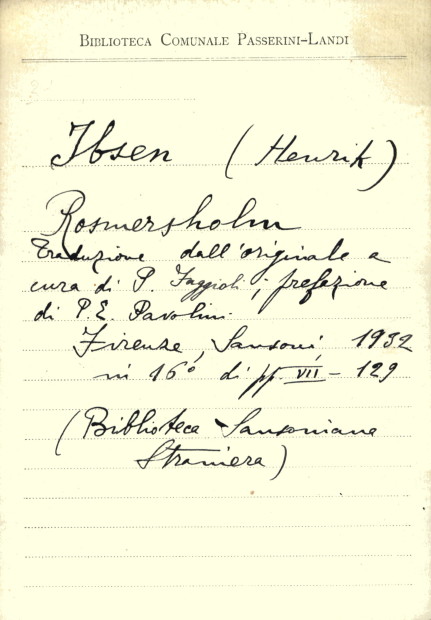 BIBLIOTECA COMUNALE PASSERINI-LANDI
Ibsen (Henrik)
Rosmersholm
Traduzione dall'originale a
cura di P. Faggioli; prefazione
di P. E. Pavolini.
Firenze, Sansoni, 1932
in 16° di pp. VII - 129
(Biblioteca Sansoniana
Straniera)